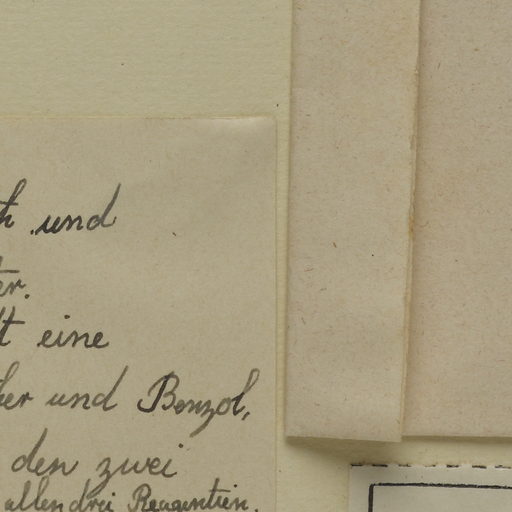 und
er.
t eine
her und Benzol,
den zwei
allen drei Reagentien.